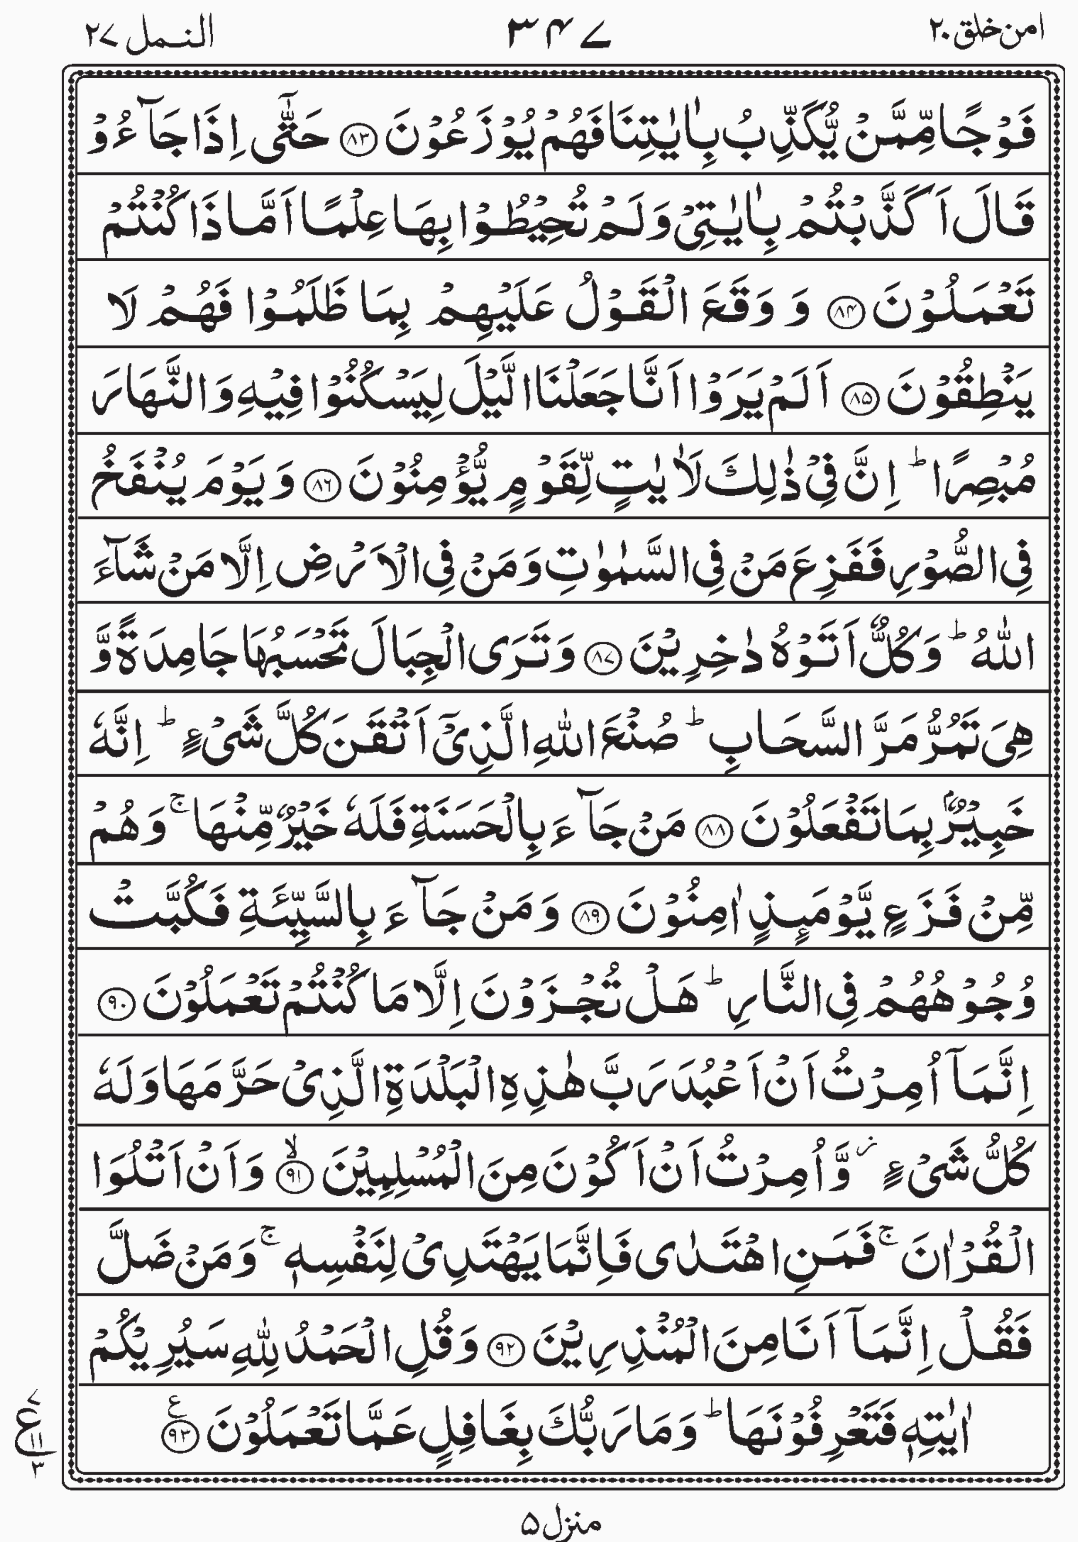 امن خلق ۲۰ ۳۴۷ النمل ۲۷
فَوْجًا مِّمَّنْ يُّكَذِّبُ بِاٰيٰتِنَا فَهُمْ يُوْزَعُوْنَ ﴿۸۳﴾ حَتّٰٓى اِذَا جَآءُوْ
قَالَ اَكَذَّبْتُمْ بِاٰيٰتِىْ وَلَمْ تُحِيْطُوْا بِهَا عِلْمًا اَمَّا ذَا كُنْتُمْ
تَعْمَلُوْنَ ﴿۸۴﴾ وَ وَقَعَ الْقَوْلُ عَلَيْهِمْ بِمَا ظَلَمُوْا فَهُمْ لَا
يَنْطِقُوْنَ ﴿۸۵﴾ اَلَمْ يَرَوْا اَنَّا جَعَلْنَا الَّيْلَ لِيَسْكُنُوْا فِيْهِ وَالنَّهَارَ
مُبْصِرًا ؕ اِنَّ فِىْ ذٰلِكَ لَاٰيٰتٍ لِّقَوْمٍ يُّؤْمِنُوْنَ ﴿۸۶﴾ وَيَوْمَ يُنْفَخُ
فِى الصُّوْرِ فَفَزِعَ مَنْ فِى السَّمٰوٰتِ وَمَنْ فِى الْاَرْضِ اِلَّا مَنْ شَآءَ
اللّٰهُ ؕ وَكُلٌّ اَتَوْهُ دٰخِرِيْنَ ﴿۸۷﴾ وَتَرَى الْجِبَالَ تَحْسَبُهَا جَامِدَةً وَّ
هِىَ تَمُرُّ مَرَّ السَّحَابِ ؕ صُنْعَ اللّٰهِ الَّذِىْٓ اَتْقَنَ كُلَّ شَىْءٍ ؕ اِنَّهٗ
خَبِيْرٌۢ بِمَا تَفْعَلُوْنَ ﴿۸۸﴾ مَنْ جَآءَ بِالْحَسَنَةِ فَلَهٗ خَيْرٌ مِّنْهَا ۚ وَهُمْ
مِّنْ فَزَعٍ يَّوْمَئِذٍ اٰمِنُوْنَ ﴿۸۹﴾ وَمَنْ جَآءَ بِالسَّيِّئَةِ فَكُبَّتْ
وُجُوْهُهُمْ فِى النَّارِ ؕ هَلْ تُجْزَوْنَ اِلَّا مَا كُنْتُمْ تَعْمَلُوْنَ ﴿۹۰﴾
اِنَّمَآ اُمِرْتُ اَنْ اَعْبُدَ رَبَّ هٰذِهِ الْبَلْدَةِ الَّذِىْ حَرَّمَهَا وَلَهٗ
كُلُّ شَىْءٍ ؗ وَّاُمِرْتُ اَنْ اَكُوْنَ مِنَ الْمُسْلِمِيْنَ ۙ﴿۹۱﴾ وَاَنْ اَتْلُوَا
الْقُرْاٰنَ ۚ فَمَنِ اهْتَدٰى فَاِنَّمَا يَهْتَدِىْ لِنَفْسِهٖ ۚ وَمَنْ ضَلَّ
فَقُلْ اِنَّمَآ اَنَا مِنَ الْمُنْذِرِيْنَ ﴿۹۲﴾ وَقُلِ الْحَمْدُ لِلّٰهِ سَيُرِيْكُمْ
اٰيٰتِهٖ فَتَعْرِفُوْنَهَا ؕ وَمَا رَبُّكَ بِغَافِلٍ عَمَّا تَعْمَلُوْنَ ﴿۹۳﴾ ع
۷
ع
۱۱
۳
منزل ۵